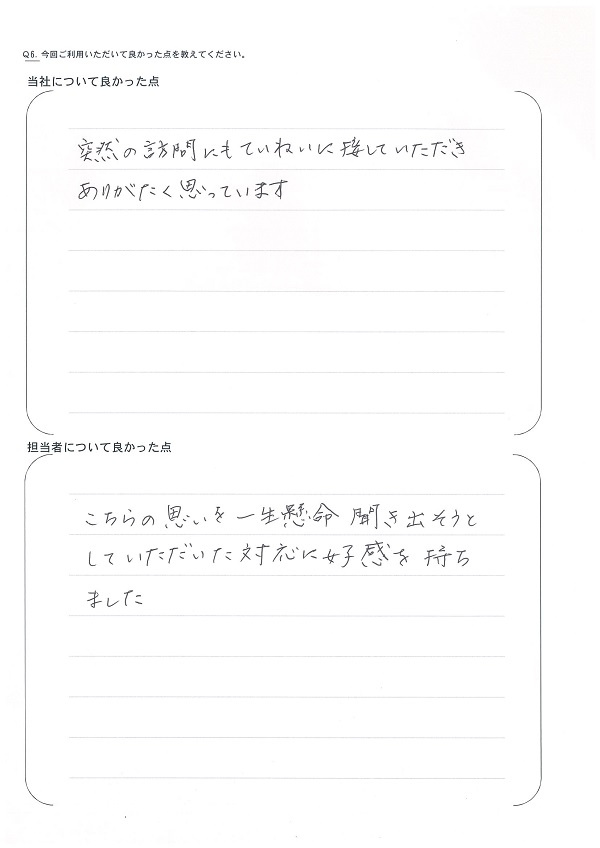 Q6. 今回ご利用いただいて良かった点を教えてください。
当社について良かった点
突然の訪問にもていねいに接していただき
ありがたく思っています
担当者について良かった点
こちらの思いを一生懸命聞き出そうと
していただいた対応に好感を持ち
ました